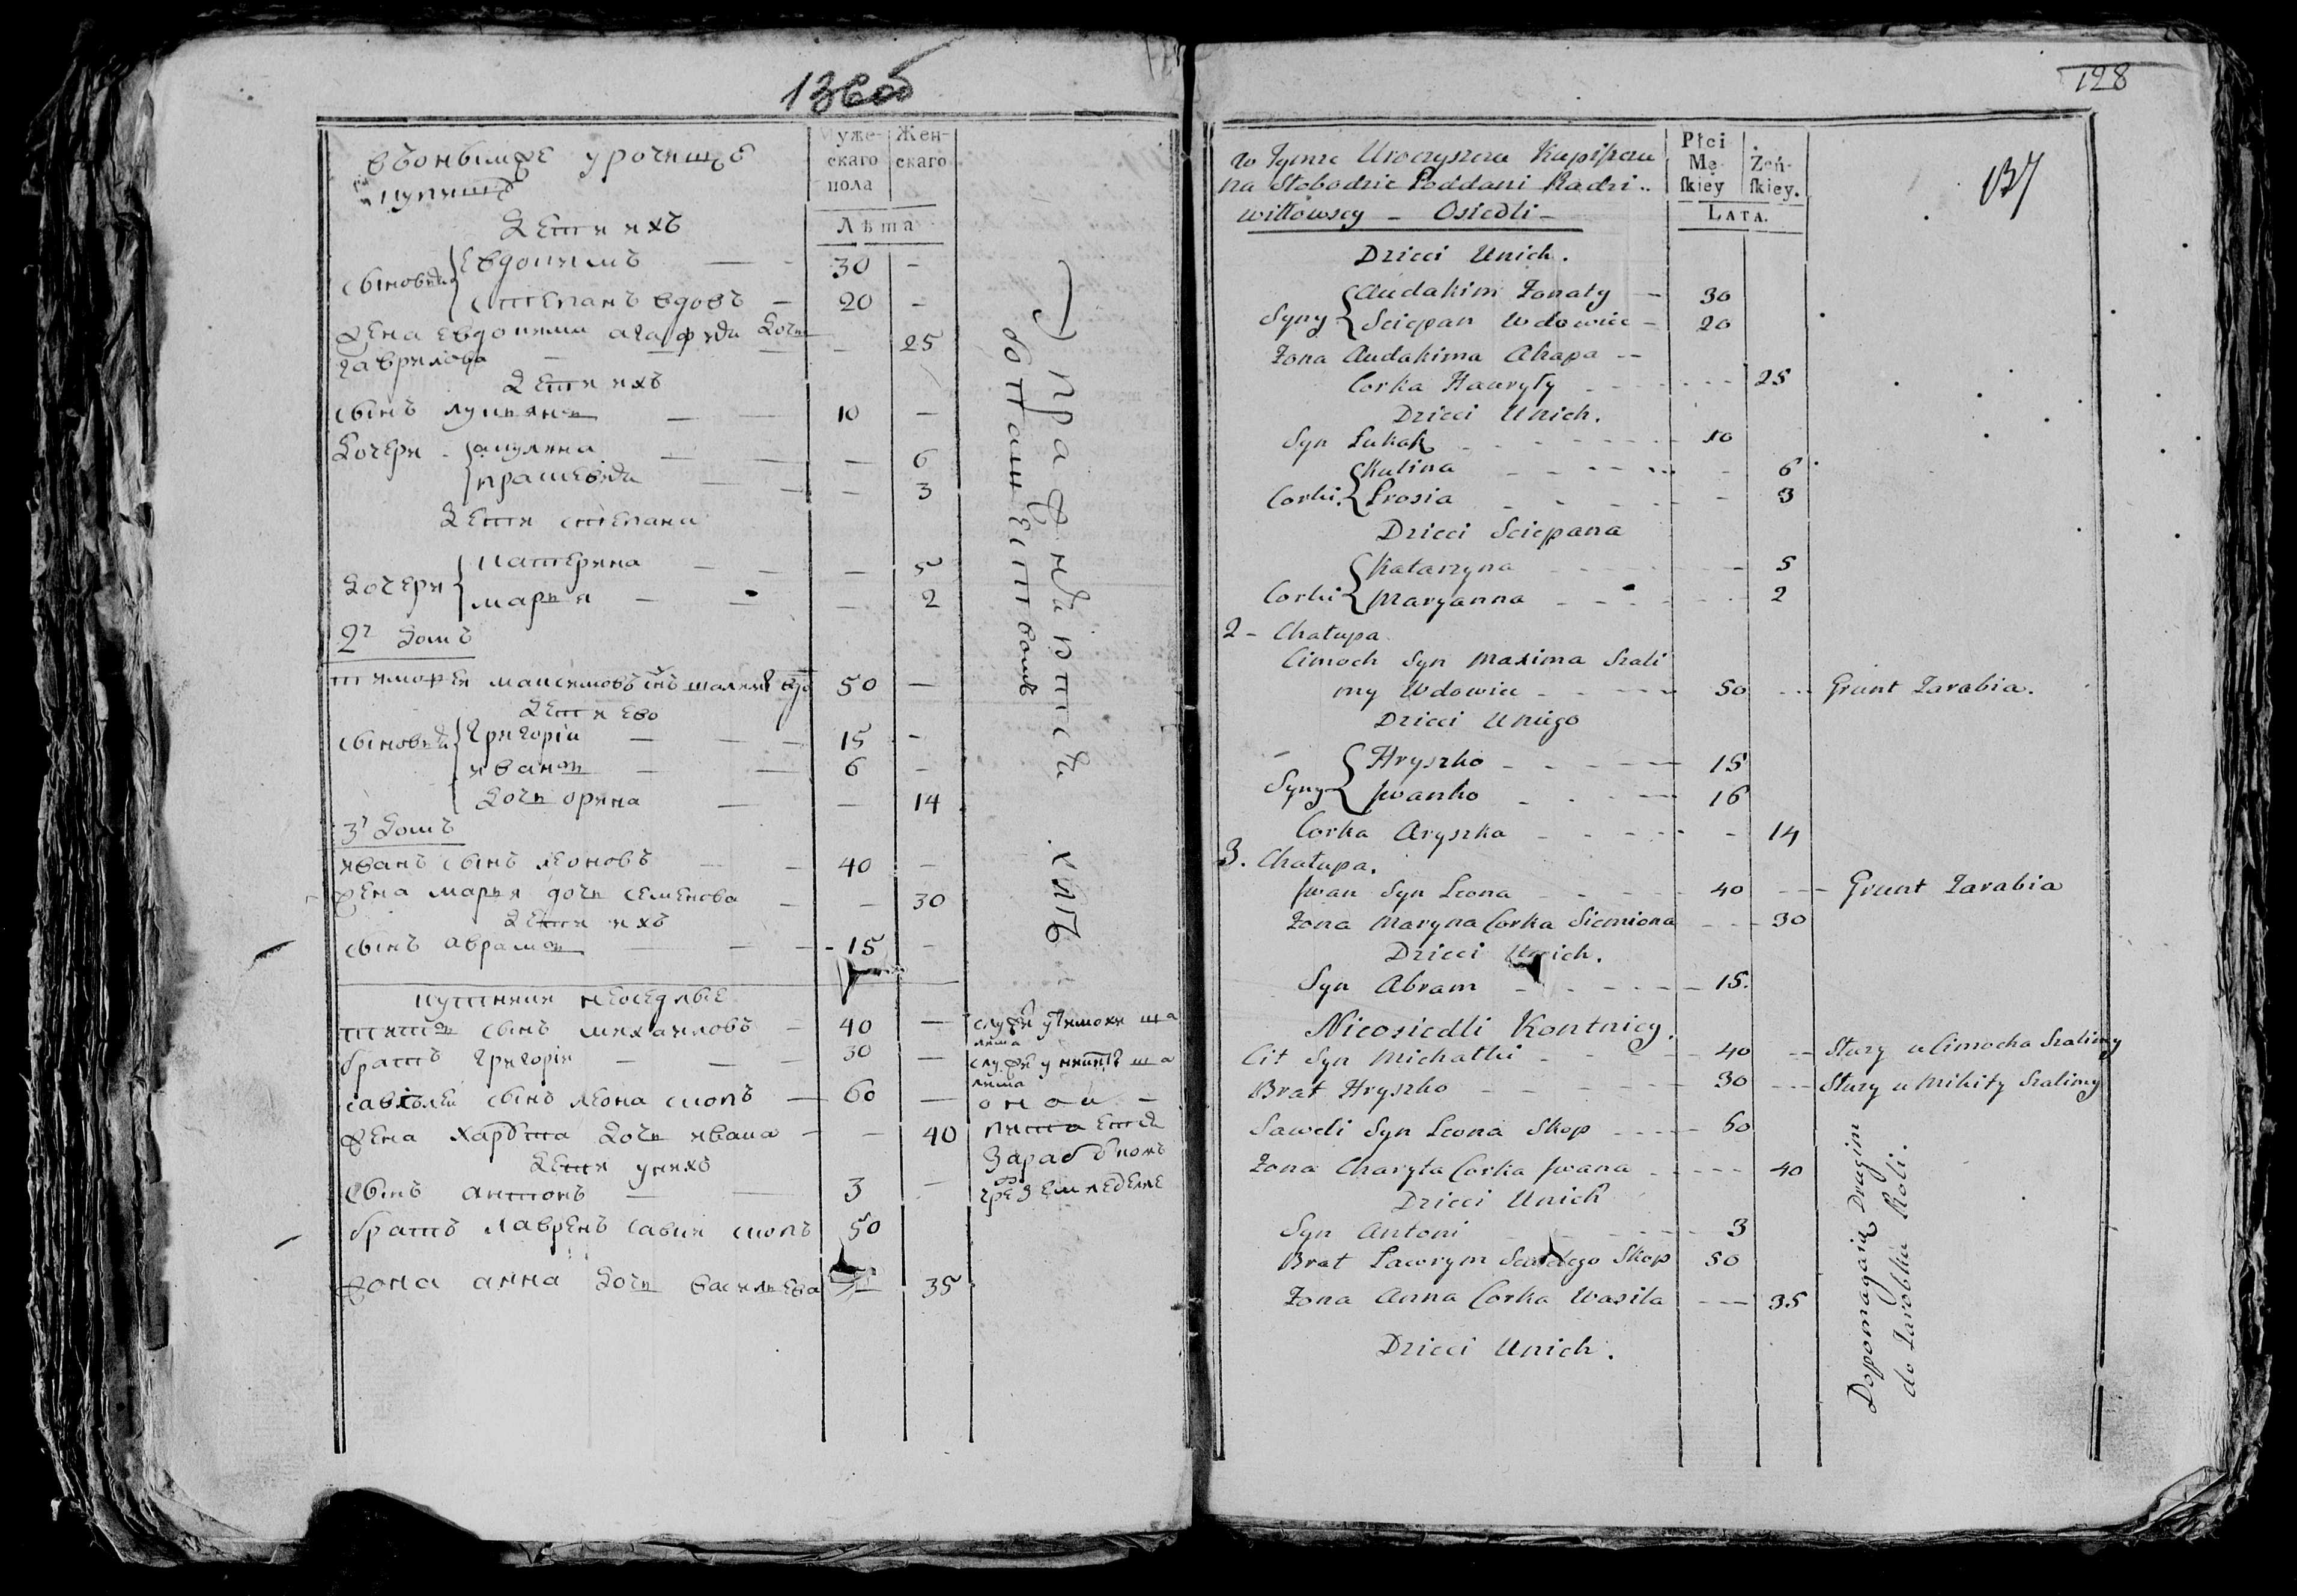 136об
въонымже урочище
Мужескаго пола
Женскаго
Лѣта
Дети ихъ
сыновья Евдокимъ — 30 -
Степанъ вдовъ — 20 -
жена Евдокима Агафия дочь
Гаврилова — — 25
Дети ихъ
сынъ Лукьянъ — 10 —
дочери Акулина — — 6
— — 3
Дети Степана
дочери Катерина — — 5
Марья — — 2
2й домъ
Тимофей Максимовъ снъ 50 —
Дети ево
сыновья Григорій — 15 -
Иванъ — 6 -
дочь Орина — — 14
3й домъ
Иванъ сынъ Леоновъ — 40 —
жена Марья дочь Семенова — — 30
Дети ихъ
сынъ Абрамъ — 15 -
кутники неоседлые
Титъ сынъ Михаиловъ — 40 —
братъ Григорій — 30 —
Савелей сынъ Леона Скопъ — 60 —
жена Харыта дочь Ивана — — 40
Дети у нихъ
сынъ Антонъ — 3 —
братъ Лавренъ Савки Скопъ 50
жона Анна дочь Васильева — 35
128
137
w Tymże Uroczyszczu Kupiszczu
na Słobodzie Poddani Radzi..
wiłłowscy – Osiedli –
Płci Męſkiey
Żeńſkiey.
LATA.
Dzieci Unich.
Syny Audakim Żonaty – 30
Sciepan Wdowiec – 20
Żona Audakima Ahapa --
Corka Hawryły - - - 25
Dzieci Unich.
Syn Łukasz - - - 10
Corki Kulina - - - 6
Prosia - - - 3
Dzieci Sciepana
Corki Katarzyna - - - 5
Maryanna - - - 2
2 – Chałupa
Cimoch Syn Maxima Szali
my Wdowiec - - - 50 --- Grunt Zarabia.
Dzieci Uniego
Syny Hryszko - - - 15
Jwanko - - - 16
Corka Aryszka - - - 14
3. Chałupa.
Jwan Syn Leona - - - 40 --- Grunt Zarabia
Żona Maryna Corka Siemiona - - - 30
Dzieci Unich.
Syn Abram - - - 15.
Nieosiedli Kontnicy.
Cit Syn Michałki - - - 40 -- Służy u Cimocha Szalimy
Brat Hryszko - - - 30 --- Służy u Mikity Szalimy
Saweli Syn Leona Skop - - - 60
Żona Charyta Corka Jwana - - - 40
Dzieci Unich
Syn Antoni - - - 3
Brat Ławrym Sawelego Skop 50
Żona Anna Corka Wasila --- 35
Dzieci Unich.
Dopomagaią Drugim
do Zarobku Roli.